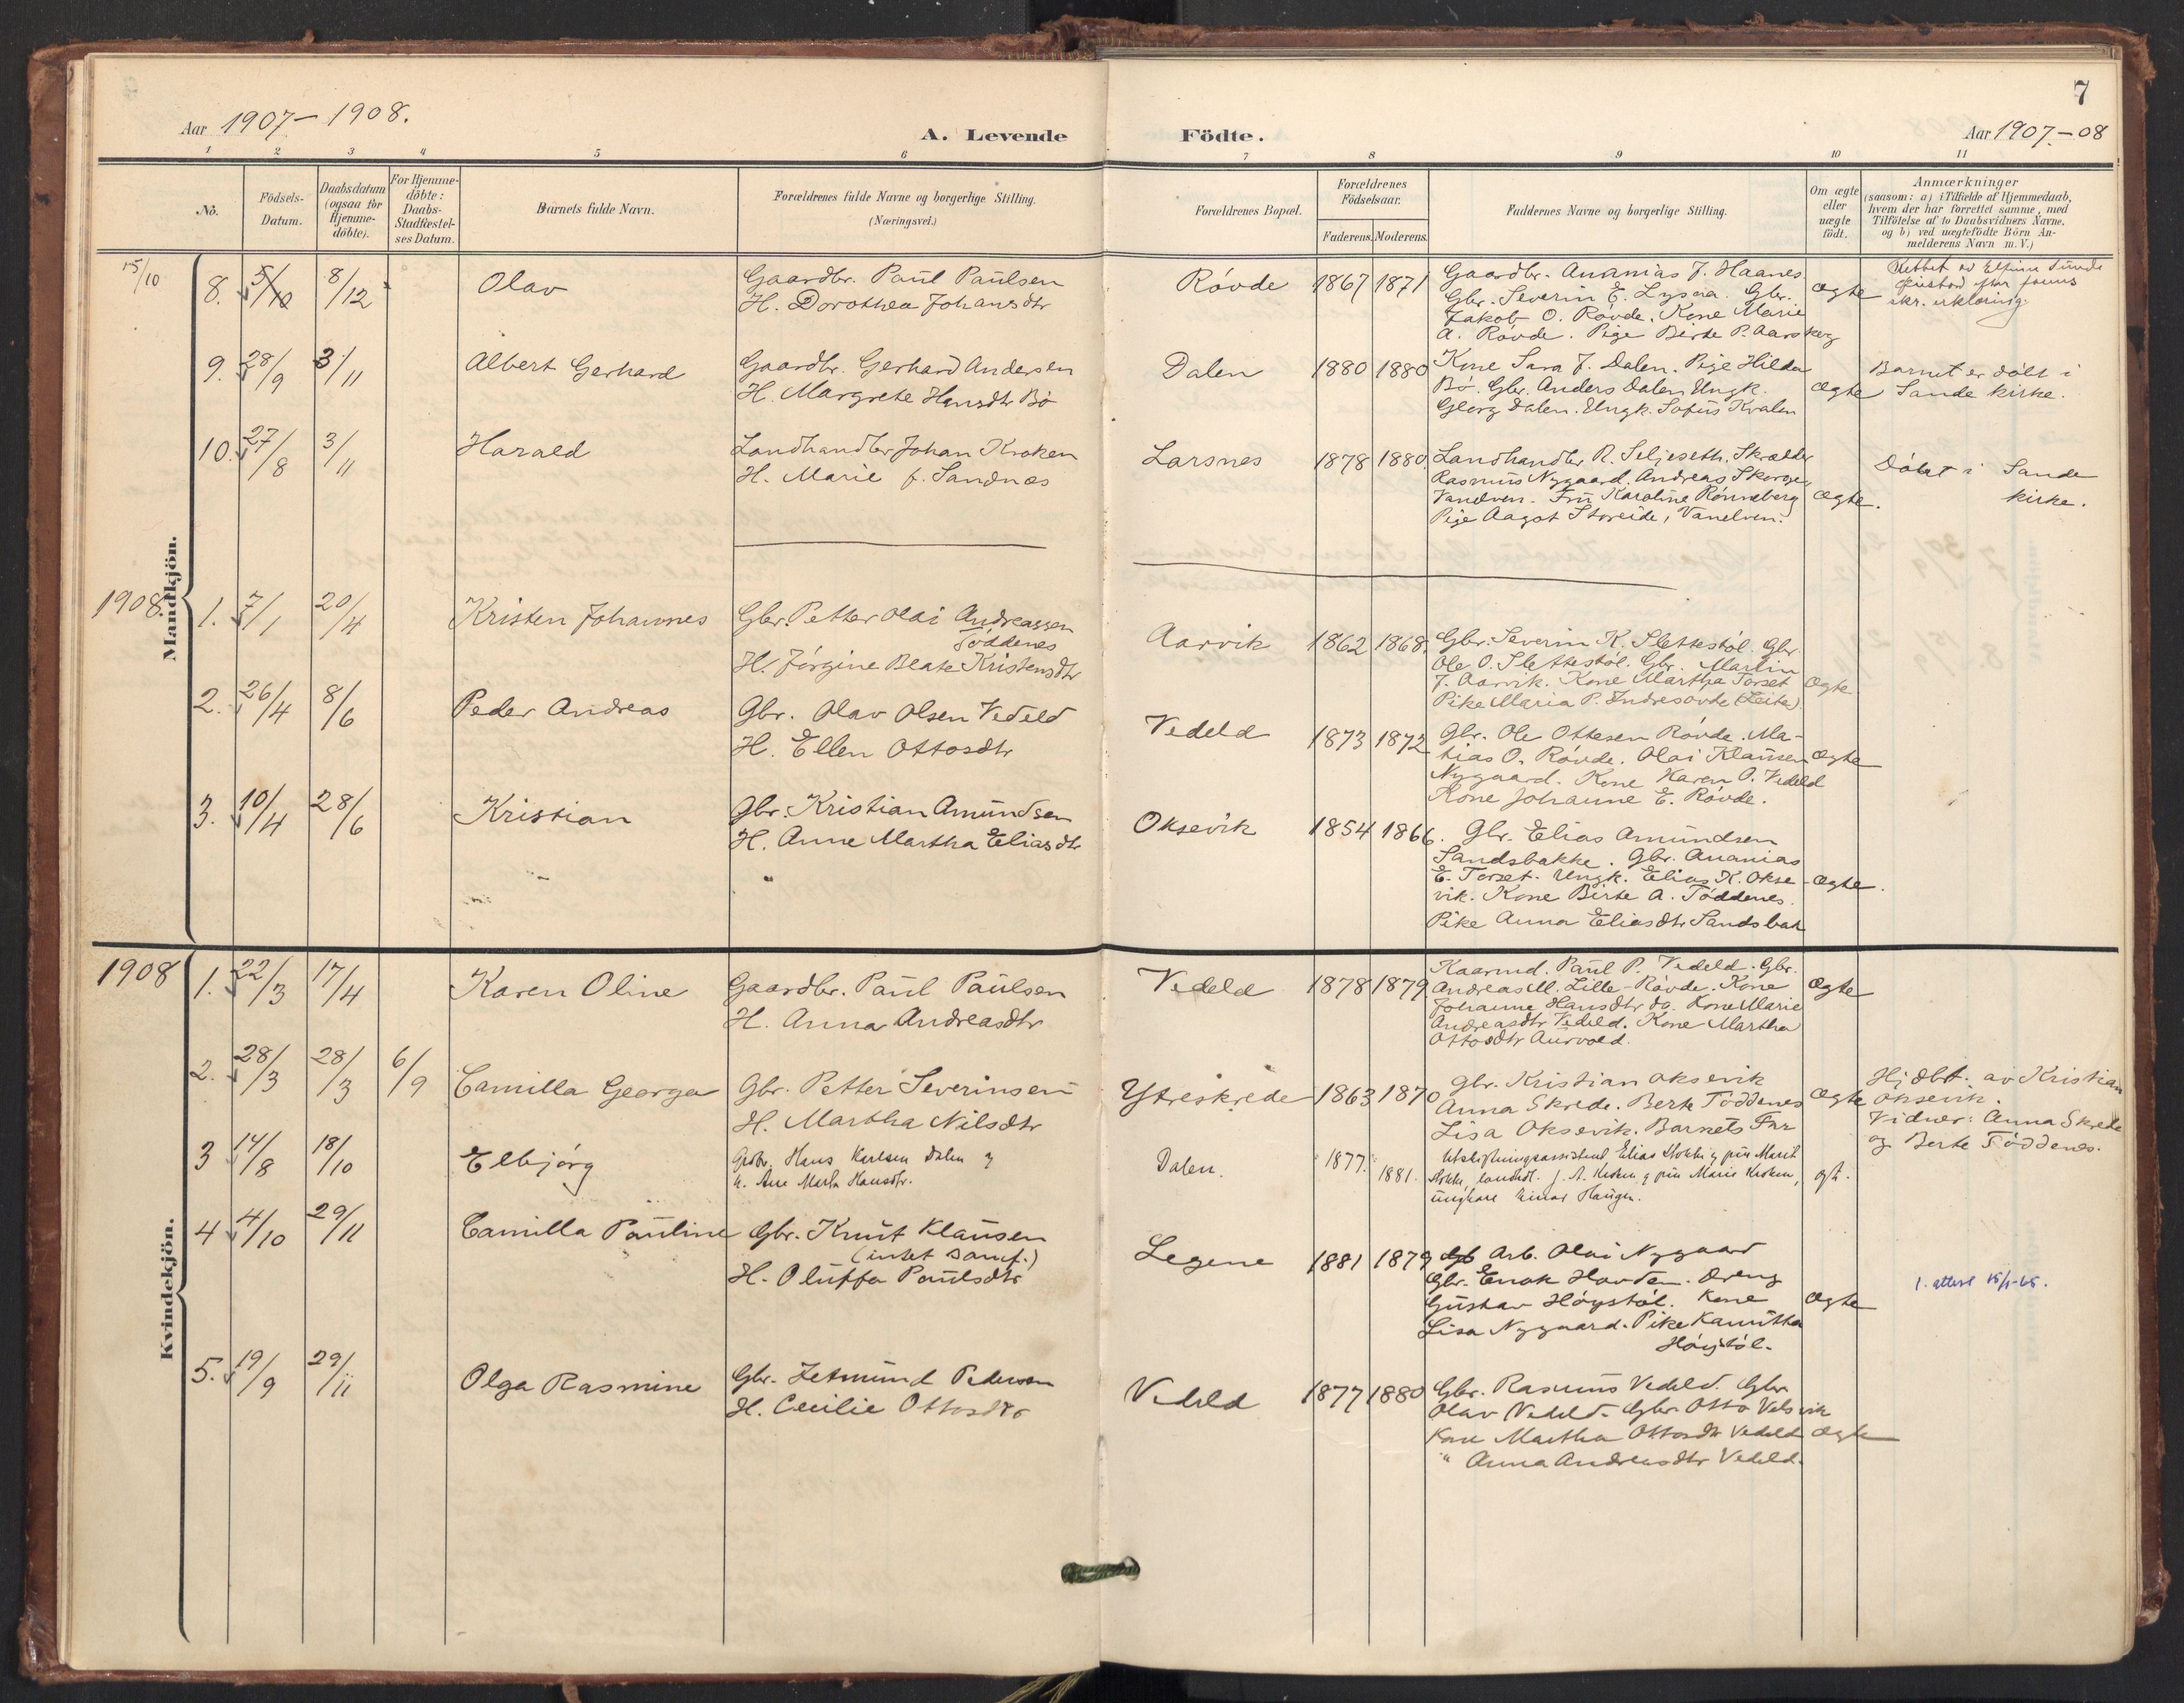 7
Aar 1907-1908.
A. Levende
Födte.
Aar 1907.-08
1 2 3 4 5 6 7 8 9 10 11
No.
Födsels-
Datum.
Daabsdatum
(ogsaa for
Hjemme-
döbte).
For Hjemme-
döbte:
Daabs-
Stadfæstel-
ses Datum.
Barnets fulde Navn.
Forældrenes fulde Navne og borgerlige Stilling.
(Næringsvei.)
Forældrenes Bopæl.
Forældrenes
Födselsaar.
Faderens. Moderens.
Faddernes Navne og borgerlige Stilling.
Om ægte
eller
uægte
födt.
Anmærkninger
(saasom: a) i Tilfælde af Hjemmedaab,
hvem der har forrettet samme, med
Tilföielse af to Daabsvidners Navne,
og b) ved uægtefödte Börn An-
melderens Navn m. V.)
Mandkjön.
15/10
8. 5/10 8/12 Olav
Gaardbr. Paul Paulsen
H. Dorothea Johansdtr
Røvde 1867 1871
Gaardbr. Ananias J. Haanes
Gbr. Severin E. Lysna. Gbr.
Jakob O. Røvde. Kone Marie
A. Røvde. Pige Berte P. Aarskog
Ægte
skr. erklæring.
9. 28/9 3/11 Albert Gerhard
Gaardbr. Gerhard Andersen
H. Margrete Hansdtr Bø
Dalen 1880 1880
Kone Sara J. Dalen. Pige Hilda
Bø. Gbr. Anders Dalen Ungk.
Georg Dalen. Ungk. Sofus Kvalen
Ægte
Barnet er døbt i
Sande kirke.
10. 27/8 3/11 Harald
Landhandler Johan Kroken
H. Marie f. Sandnes
Larsnes 1878 1880.
Landhandler R. Seljeseth. Skrædder
Rasmus Nygaard. Andreas Skorge,
Vanelven. Fru Karoline Rønneberg
Pige Aagot Storeide, Vanelven.
Ægte.
Døbt i Sande
kirke.
1908.
1. 7/1 20/4 Kristen Johannes
Gbr. Petter Olai Andreassen
Tøddenes
H. Jørgine Beate Kristensdtr
Aarvik 1862 1868.
Gbr. Severin K. Slettestøl. Gbr.
Ole O. Slettestøl. Gbr. Martin
J. Aarvik. Kone Martha Torset
Pike Maria P. Indresovde (Leite)
Ægte
2. 26/4 8/6 Peder Andreas
Gbr. Olav Olsen Vedeld
H. Ellen Ottosdtr
Vedeld 1873 1872
Gbr. Ole Ottesen Røvde. Ma-
tias O. Røvde. Olai Klausen
Nygaard. Kone Karen O. Vedeld
Kone Johanne E. Røvde.
Ægte
3. 10/4 28/6 Kristian
Gbr. Kristian Amundsen
H. Anne Martha Eliasdtr
Oksevik 1854 1866.
Gbr. Elias Amundsen
Sandsbakke. Gbr. Ananias
E. Torset. Ungk. Elias K. Okse-
vik. Kone Birte A. Tøddenes.
Pike Anna Eliasdtr Sandsbak
Ægte.
Kvindekjön.
1908
1. 22/3 17/4 Karen Oline
Gaardbr. Paul Paulsen
H. Anna Andreasdtr
Vedeld 1878 1879
Kaarmd. Paul P. Vedeld. Gbr.
Andreas M. Lille-Røvde. Kone
Johanne Hansdtr do. Kone Marie
Andreasdtr Vedeld. Kone Martha
Ottosdtr Aurvold.
Ægte
2. 28/3 28/3 6/9 Camilla Georga
Gbr. Petter Severinsen
H. Martha Nilsdtr
Ytreskrede 1863 1870
Gbr. Kristian Oksevik
Anna Skrede. Berte Tøddenes
Lisa Oksevik. Barnets Far
Ægte
Hjdbt. av Kristian
Oksevik.
Vidner: Anna Skrede
og Berte Tøddenes.
3 14/8 18/10 Elbjörg
Grdbr. Hans Karlsen Dalen og
h. Ane Marta Hansdtr.
Dalen. 1877. 1881.
Utskiftningsassistent Elias Stokke og fru Marit
Stokke, landhdl. J. A. Kroken og fru Marie Kroken,
ungkare Einar Haugen.
egt.
4 4/10 29/11 Camilla Pauline
Gbr. Knut Klausen
(intet samf.)
H. Oluffa Paulsdtr
Legene 1881 1879
Arb. Olai Nygaard
Gbr. Enok Hovden. Dreng
Gustav Høystøl. Kone
Lisa Nygaard. Pike Kamitha
Høystøl.
Ægte
1. attest 15/1-65.
5. 19/9 29/11 Olga Rasmine
Gbr. Zetmund Pedersen
H. Cecilie Ottosdtr
Vedeld 1877 1880
Gbr. Rasmus Vedeld. Gbr.
Olav Vedeld. Gbr. Otto Velsvik
Kone Martha Ottosdtr Vedeld
" Anna Andreasdtr Vedeld.
Ægte